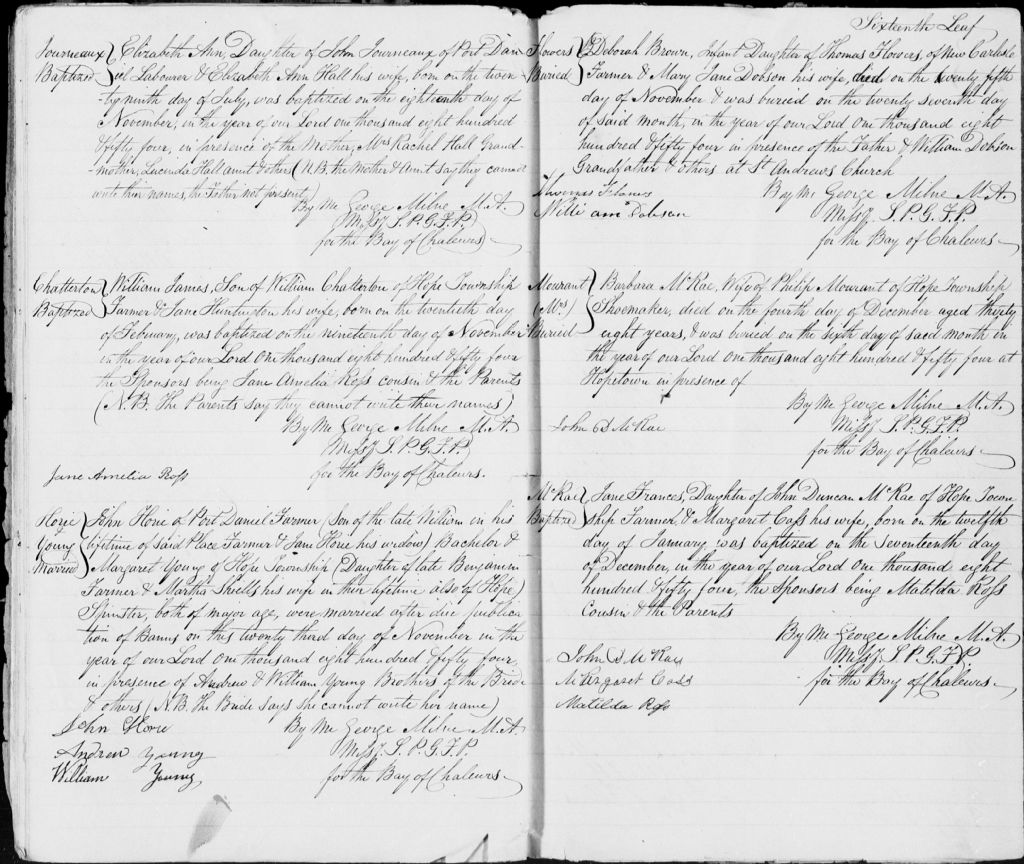 Journeaux Elizabeth Ann, Daughter of John Journeaux of Port Dani
Baptized iel Labourer & Elizabeth Ann Hall his wife, born on the twen
-ty ninth day of July, was baptized on the eighteenth day of
November, in the year of our Lord one thousand eight hundred
& fifty four, in presence of the Mother, Mrs Rachel Hall Grand-
-mother, Lucinda Hall aunt & others (N.B. the Mother & Aunt say they cannot
write their names, the Father not present)
By Me George Milne M.A.
Missy. S.P.G.F.P.
for the Bay of Chaleurs
Chatterton William James, Son of William Chatterton of Hope Township
Baptized Farmer & Jane Huntington his wife, born on the twentieth day
of February, was baptized on the nineteenth day of November
in the year of our Lord One thousand eight hundred & fifty four
the Sponsors being Jane Amelia Ross cousin & the Parents
(N.B. The Parents say they cannot write their names)
By Me George Milne M.A.
Missy S.P.G.F.P.
for the Bay of Chaleurs.
Jane Amelia Ross
Horie John Horie of Port Daniel Farmer (Son of the late William in his
Young lifetime of said Place Farmer & Jane Horie his widow) Bachelor &
Married Margaret Young of Hope Township (Daughter of late Benjamin
Farmer & Martha Shells his wife in their lifetime also of Hope)
Spinster, both of major age, were married after due publica
tion of Banns on this twenty third day of November in the
year of our Lord One thousand eight hundred & fifty four,
in presence of Andrew & William Young Brothers of the Bride
& others (N.B. The Bride says she cannot write her name)
John Horie By Me George Milne M.A.
Andrew Young Missy. S.P.G.F.P.
William Young for the Bay of Chaleurs
Sixteenth Leaf
Flowers Deborah Brown, Infant Daughter of Thomas Flowers, of New Carlisle
Buried Farmer & Mary Jane Dobson his wife, died on the twenty fifth
day of November & was buried on the twenty seventh day
of said month, in the year of our Lord One thousand eight
hundred & fifty four in presence of the Father & William Dobson
Grandfather & others at St Andrews Church
Thomas By Me George Milne M.A.
William Dobson Missy. S.P.G.F.P.
for the Bay of Chaleurs
Mourant Barbara McRae, Wife of Philip Mourant of Hope Township
(Mrs) Shoemaker, died on the fourth day of December aged thirty
Buried eight years, & was buried on the sixth day of said month in
the year of our Lord One thousand eight hundred & fifty four at
Hopetown in presence of
By Me George Milne M.A.
John D McRae Missy S.P.G.F.P.
for the Bay of Chaleurs
McRae Jane Frances, Daughter of John Duncan McRae of Hope Town
Baptized ship Farmer & Margaret Cass his wife, born on the twelfth
day of January was baptized on the Seventeenth day
of December, in the year of our Lord One thousand eight
hundred & fifty four, the Sponsors being Matilda Ross
Cousin & the Parents
By Me George Milne M.A.
John D McRae Missy. S.P.G.F.P.
Margaret Cass for the Bay of Chaleurs
Matilda Ross